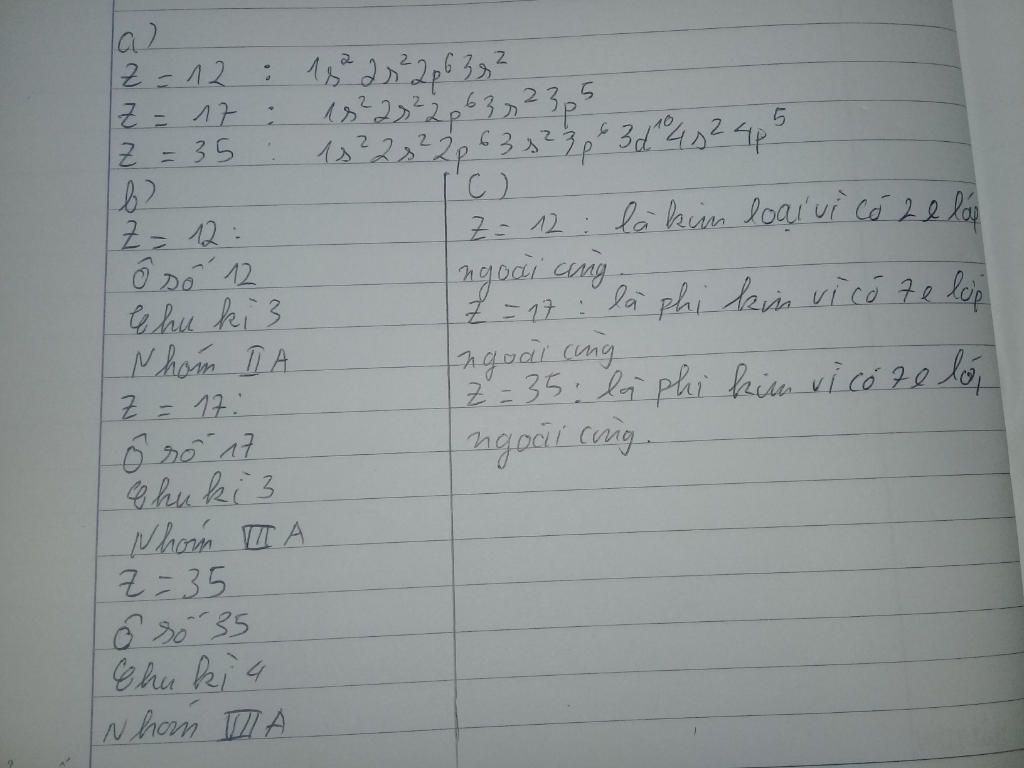 a)
Z = 12 : 1s² 2s² 2p⁶ 3s²
Z = 17 : 1s² 2s² 2p⁶ 3s² 3p⁵
Z = 35 : 1s² 2s² 2p⁶ 3s² 3p⁶ 3d¹⁰ 4s² 4p⁵
b)
Z = 12 :
Ô số 12
Chu kì 3
Nhóm II A
Z = 17 :
Ô số 17
Chu kì 3
Nhóm VII A
Z = 35
Ô số 35
Chu kì 4
Nhóm VII A
c)
Z = 12 : là kim loại vì có 2 e lớp
ngoài cùng.
Z = 17 : là phi kim vì có 7 e lớp
ngoài cùng
Z = 35 : là phi kim vì có 7 e lớp
ngoài cùng.